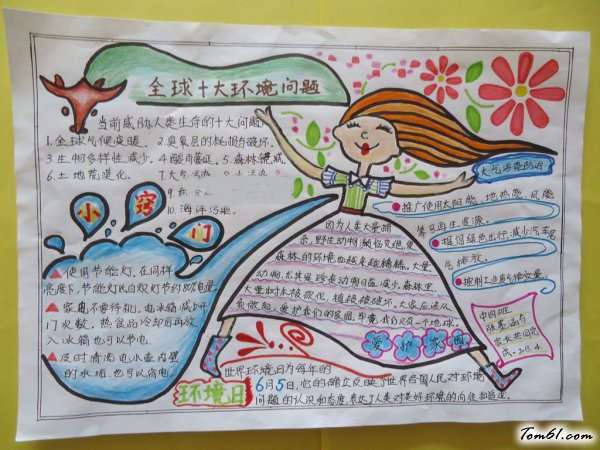 全球十大环境问题
当前威胁人类生存的十大问题
1.全球气候变暖. 2.臭氧层的耗损与破坏.
3.生物多样性减少. 4.酸雨蔓延. 5.森林锐减.
6.土地荒漠化. 7.大气污染
10.海洋污染.
小窍门
▲使用节能灯,在同样
亮度下,节能灯比白炽灯节约80%电量.
▲家电不要待机,电冰箱减少开
门次数,热食品冷却后再放
入冰箱也可以节电.
▲及时清洗电水壶内壁
的水垢,也可以省电.
因为人类大量捕
杀,野生动物濒临灭绝,使
森林的环境也越来越糟糕.大量
动物,尤其是珍贵动物日益减少.森林里
大量树木被砍伐,植被被破坏.大家应该从
我做起,爱护我们的家园,毕竟,我们只有一个地球.
爱护家园
大气污染防治
推广使用太阳能,地热能,风能
等可再生资源.
提倡绿色出行,减少汽车尾
气排放.
控制工业废气排放量.
家长共同完
成.2015.4.
环境日
世界环境日为每年的
6月5日,它的确立反映了世界各国人民对环境
问题的认识和态度,表达了人类对美好环境的向往和追求.
Tom61.com